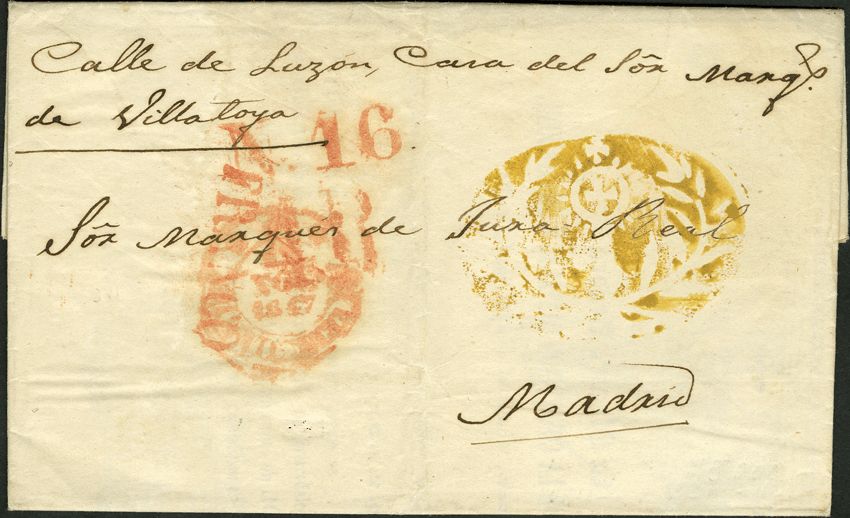 Calle de Luzón, Casa del Sōr Marqs.
de Villatoya
16
Sōr Marqués de Jura-Real
Madrid